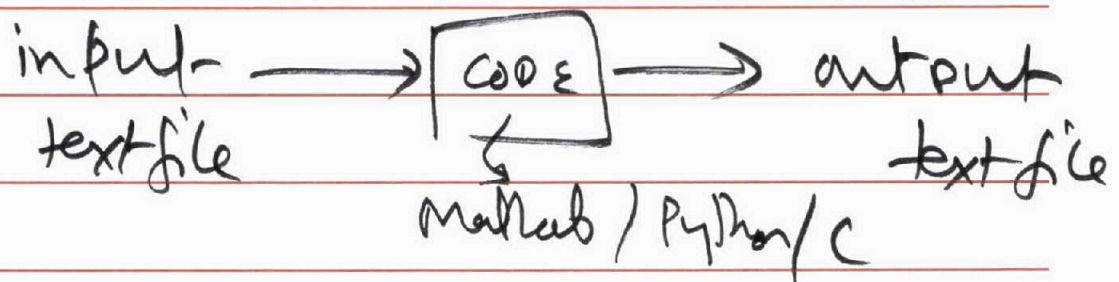 input → CODE → output
textfile textfile
Matlab / Python / C